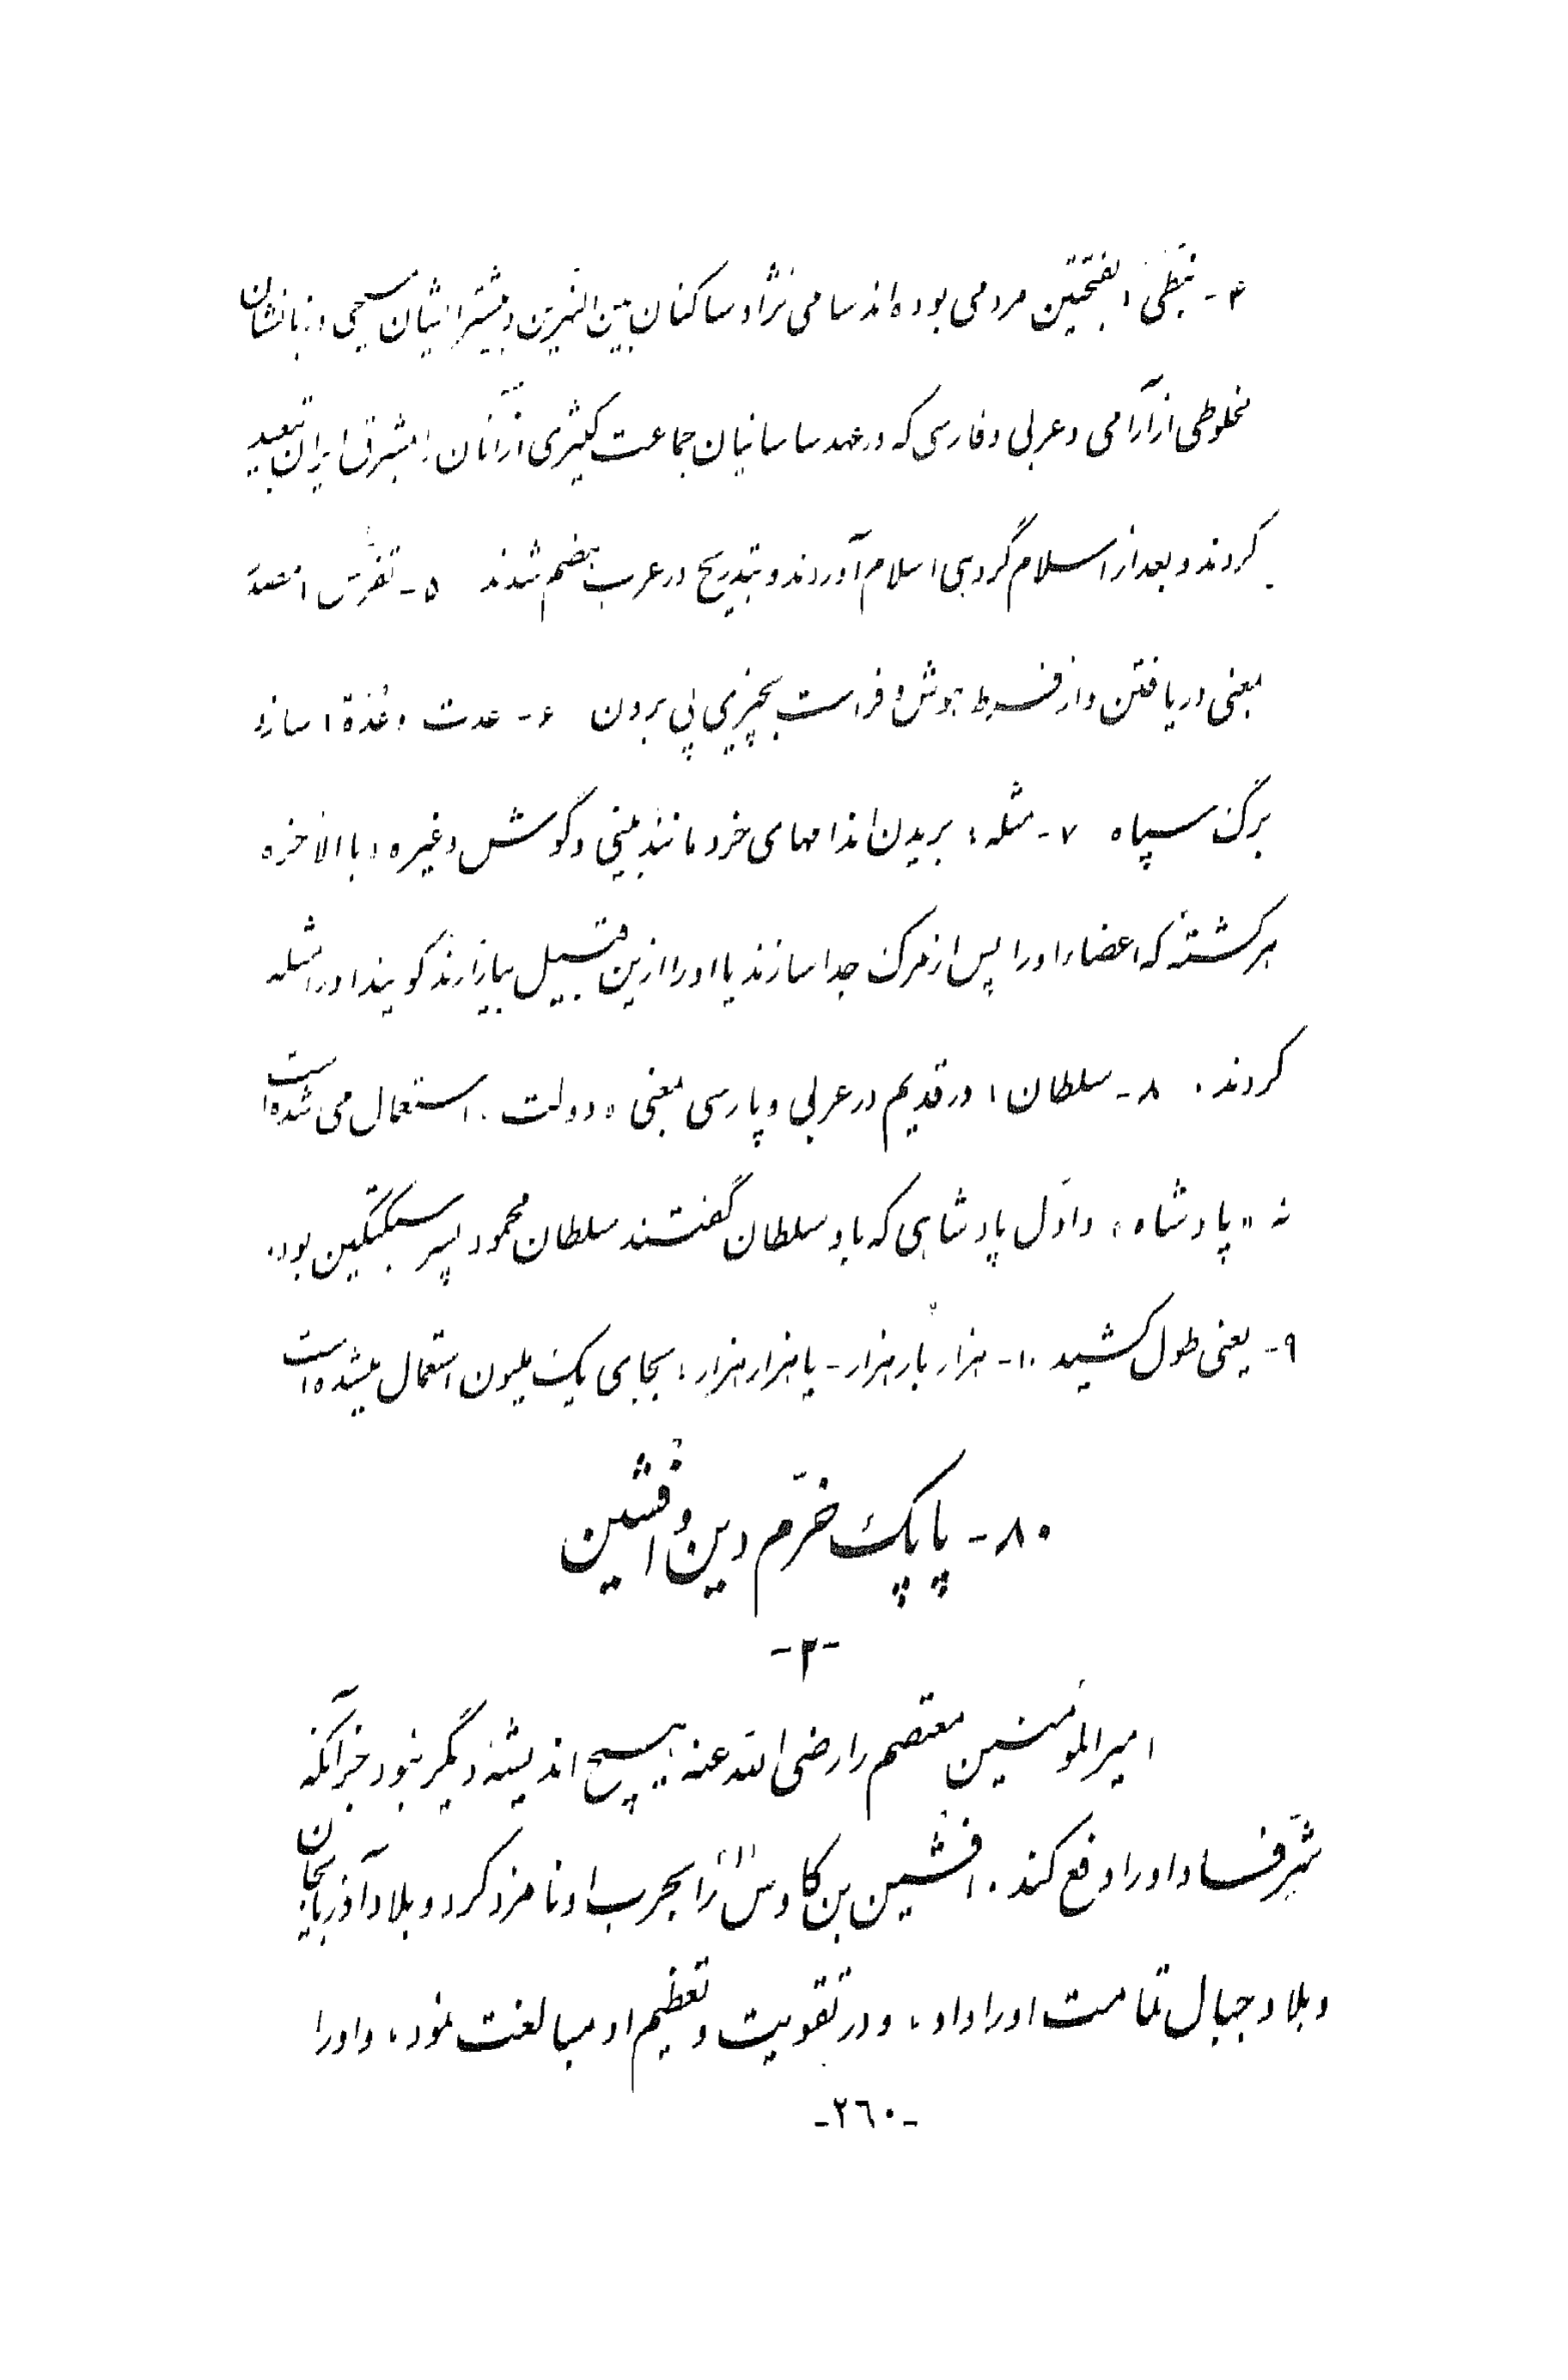 ۴- نبَطی، بفتحتین مردمی بوده‌اند سامی نژاد ساکنان بین‌النهرین و بیشترایشان مسیحی و زبانشان
مخلوطی از آرامی و عربی و فارسی که در عهد ساسانیان جماعت کثیری از آنان را بمشرق ایران تبعید
کردند و بعد از اسلام گروهی اسلام آوردند و بتدریج در عرب هضم شدند ۵- تفرّس: مصدَ
بمعنی دریافتن و از فرط هوش و فراست بچیزی پی بردن ۶- عدت و عُدّة: سازو
برگ سپاه ۷- مثله: بریدن اندامهای خرد مانند بینی و گوش و غیره و بالاخره
هر کشته که اعضاء او را پس از مرگ جدا سازند یا او را ازین قبیل بیازارند گویند او را مثله
کردند. ۸- سلطان: در قدیم در عربی و پارسی بمعنی «دولت» استعمال می‌شده‌است
نه «پادشاه» و اوّل پادشاهی که باو سلطان گفتند سلطان محمود پسر سبکتگین بود.
۹- یعنی طول کشید ۱۰- هزار بار هزار - یا هزار هزار: بجای یک ملیون استعمال میشده است
۸۰- پاپک خرّم دین و افشین
-۲-
امیرالمؤمنین معتصم را رضی الله عنه هیچ اندیشهٔ دیگر نبود جز آنکه
شرّ فساد او را دفع کند. افشین بن کاوس (۱) را بحرب او نامزد کرد و بلاد آذربایجان
و بلاد جبال تمامت او را داد، و در تقویت و تعظیم او مبالغت نمود، و او را
-۲۶۰-